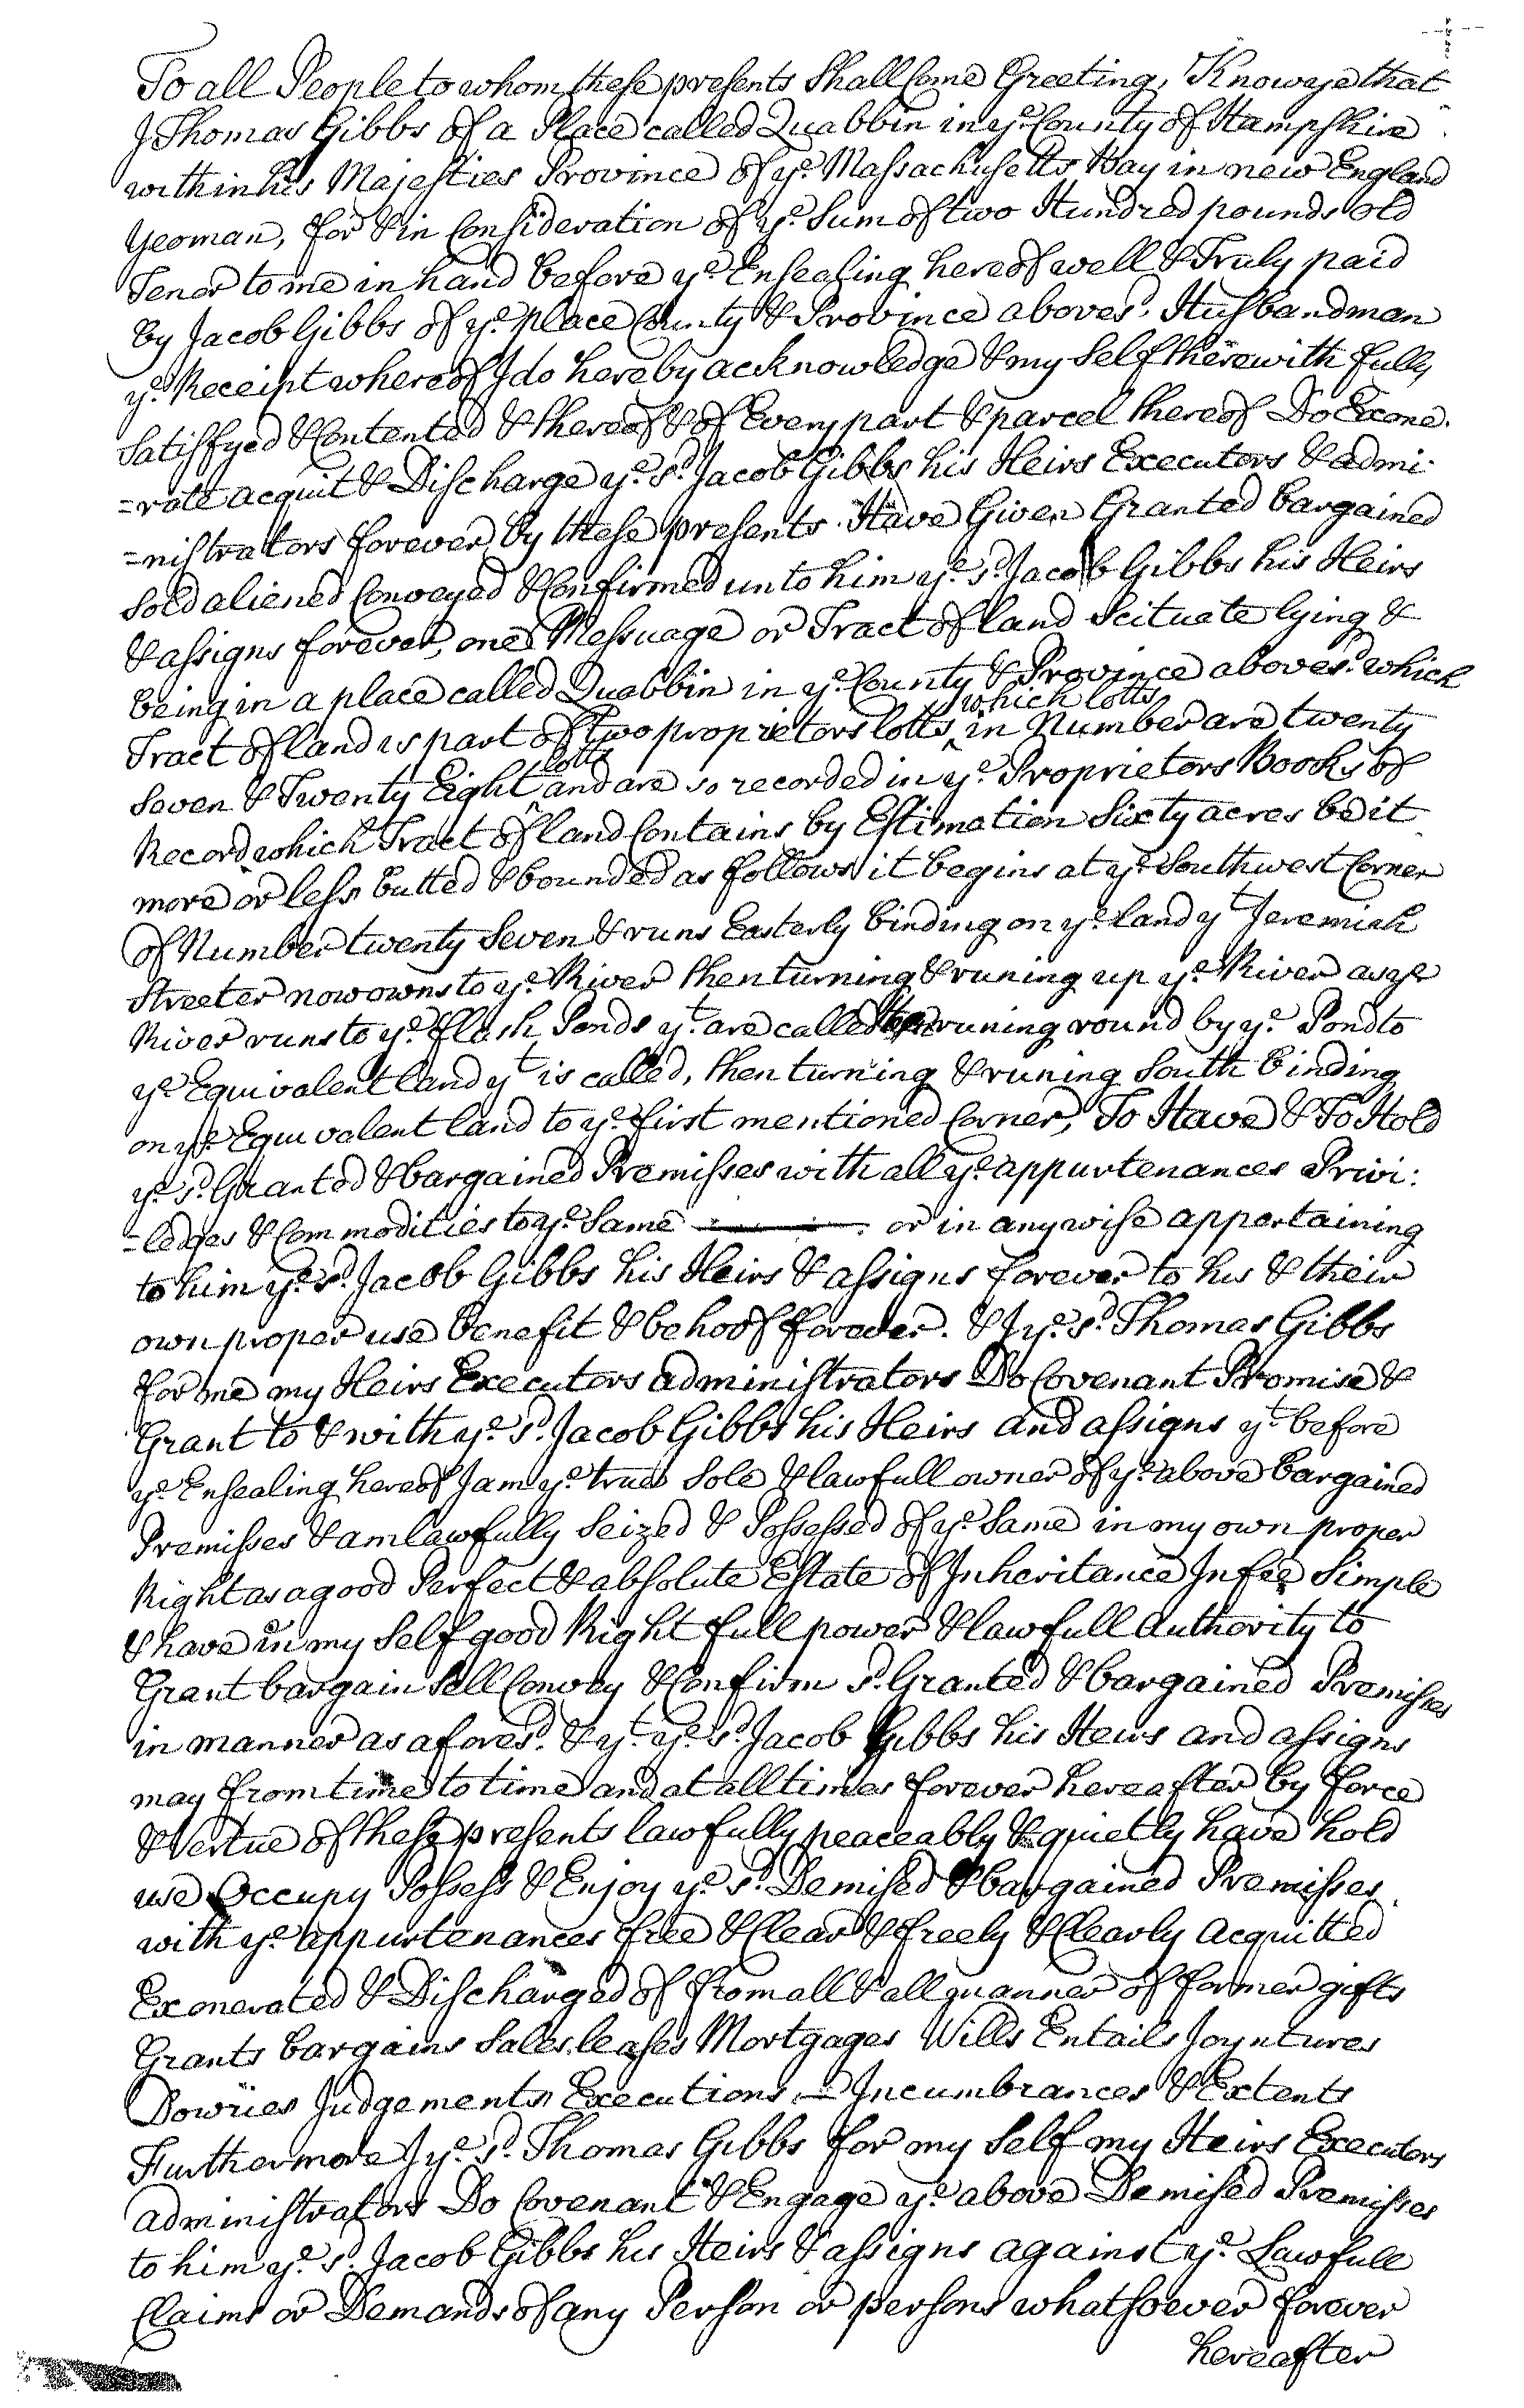 To all People to whom these presents Shall Come Greeting, Know ye that
I Thomas Gibbs of a Place called Quabbin in ye. County of Hampshire
within his Majesties Province of ye. Massachusetts Bay in new England
Yeoman, for & in Consideration of ye. Sum of two Hundred pounds old
Tenor to me in hand before ye. Ensealing hereof well & Truly paid
by Jacob Gibbs of ye. place County & Province aboves.d Husbandman
ye. Receipt whereof I do hereby acknowledge & my Self therewith fully
Satisfyed & Contented & thereof & of Every part & parcel thereof Do Exone.
=rate acquit & Discharge ye. sd. Jacob Gibbs his Heirs Executors & admi-
=nistrators forever by these presents. Have Given Granted bargained
Sold aliened Conveyed & Confirmed unto him ye. sd. Jacob Gibbs his Heirs
& assigns forever, one Messuage or Tract of land Scituate lying &
being in a place called Quabbin in ye. County & Province aboves.d which
Tract of land is part of Two proprietors lotts which lotts in Number are twenty
Seven & Twenty Eight lotts and are so recorded in ye. Proprietors Books of
Record which Tract of land Contains by Estimation Sixty acres be it
more or less butted & bounded as follows it begins at ye. Southwest Corner
of Number twenty Seven & runs Easterly binding on ye. land yt Jeremiah
Streeter now owns to ye. River then turning & runing up ye. River as ye
River runs to ye. flash Ponds yt. are called then runing round by ye. Pond to
ye Equivalent land yt is called, then turning & runing South binding
on ye. Equivalent land to ye. first mentioned Corner, To Have & To Hold
ye. sd. Granted & bargained Premisses with all ye. appurtenances Privi:
=ledges & Commodities to ye. Same or in any wise appertaining
to him ye. sd. Jacob Gibbs his Heirs & assigns forever to his & their
own proper use benefit & behoof forever. & I ye. sd. Thomas Gibbs
for me my Heirs Executors administrators Do Covenant Promise &
Grant to & with ye. sd. Jacob Gibbs his Heirs and assigns yt before
ye. Ensealing hereof I am ye. true Sole & lawfull owner of ye. above bargained
Premisses & am lawfully Seized & Possessed of ye. Same in my own proper
Right as a good Perfect & absolute Estate of Inheritance In fee Simple
& have in my Self good Right full power & lawfull Authority to
Grant bargain Sell Convey & Confirm sd. Granted & bargained Premisses
in manner as afores.d & yt. ye. sd. Jacob Gibbs his Heirs and assigns
may from time to time and at all times forever hereafter by force
& Vertue of these presents lawfully peaceably & quietly have hold
use Occupy Possess & Enjoy ye. sd. Demised & bargained Premisses
with ye. appurtenances free & Clear & freely & Clearly acquitted
Exonerated & Discharged of from all & all manner of former gifts
Grants bargains Sales leases Mortgages Wills Entails Joyntures
Dowries Judgements Executions — Incumbrances & Extents
Furthermore I ye. sd. Thomas Gibbs for my Self my Heirs Executors
administrators Do Covenant & Engage ye. above Demised Premisses
to him ye. sd. Jacob Gibbs his Heirs & assigns against ye. Lawfull
Claims or Demands of any Person or persons whatsoever forever
hereafter